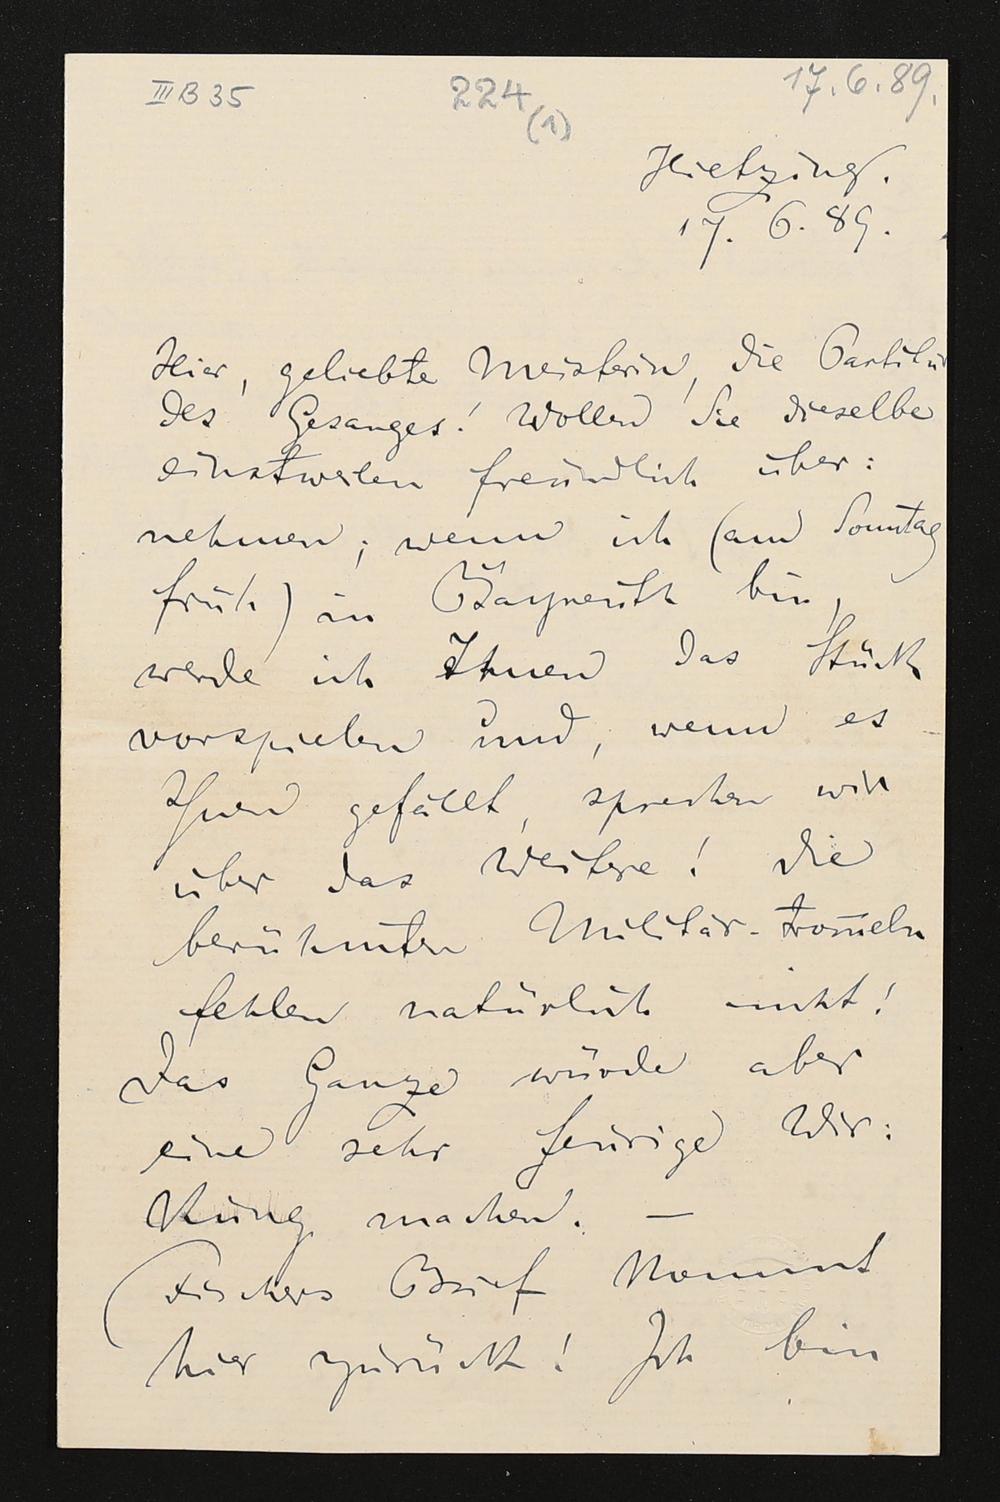 III B 35
224
(1)
17.6.89.
Hietzing.
17. 6. 89.
Hier, geliebte Meisterin, die Partitur
des Gesanges! Wollen Sie dieselbe
einstweilen freundlich über:
nehmen; wenn ich (am Sonntag
früh) in Bayreuth bin,
werde ich Ihnen das Stück
vorspielen und, wenn es
Ihnen gefällt, sprechen wir
über das Weitere! Die
berühmten Militär-Trom̅eln
fehlen natürlich nicht!
Das Ganze würde aber
eine sehr feurige Wir:
kung machen. —
(Fischers Brief kommt
hier zurück! Ich bin